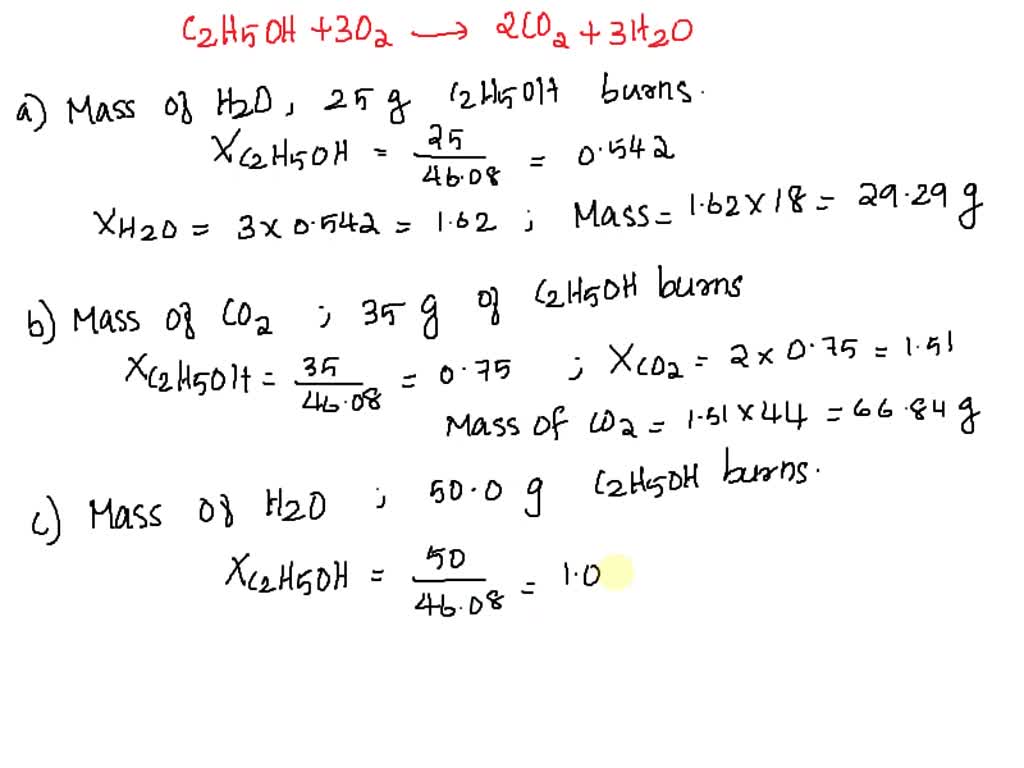 C2H5OH + 3O2 → 2CO2 + 3H2O
a) Mass of H2O, 25 g C2H5OH burns.
XC2H5OH = 25/46.08 = 0.542
XH2O = 3 x 0.542 = 1.62 ; Mass = 1.62 x 18 = 29.29 g
b) Mass of CO2 ; 35 g of C2H5OH burns
XC2H5OH = 35/46.08 = 0.75 ; XCO2 = 2 x 0.75 = 1.51
Mass of CO2 = 1.51 x 44 = 66.84 g
c) Mass of H2O ; 50.0 g C2H5OH burns.
XC2H5OH = 50/46.08 = 1.0